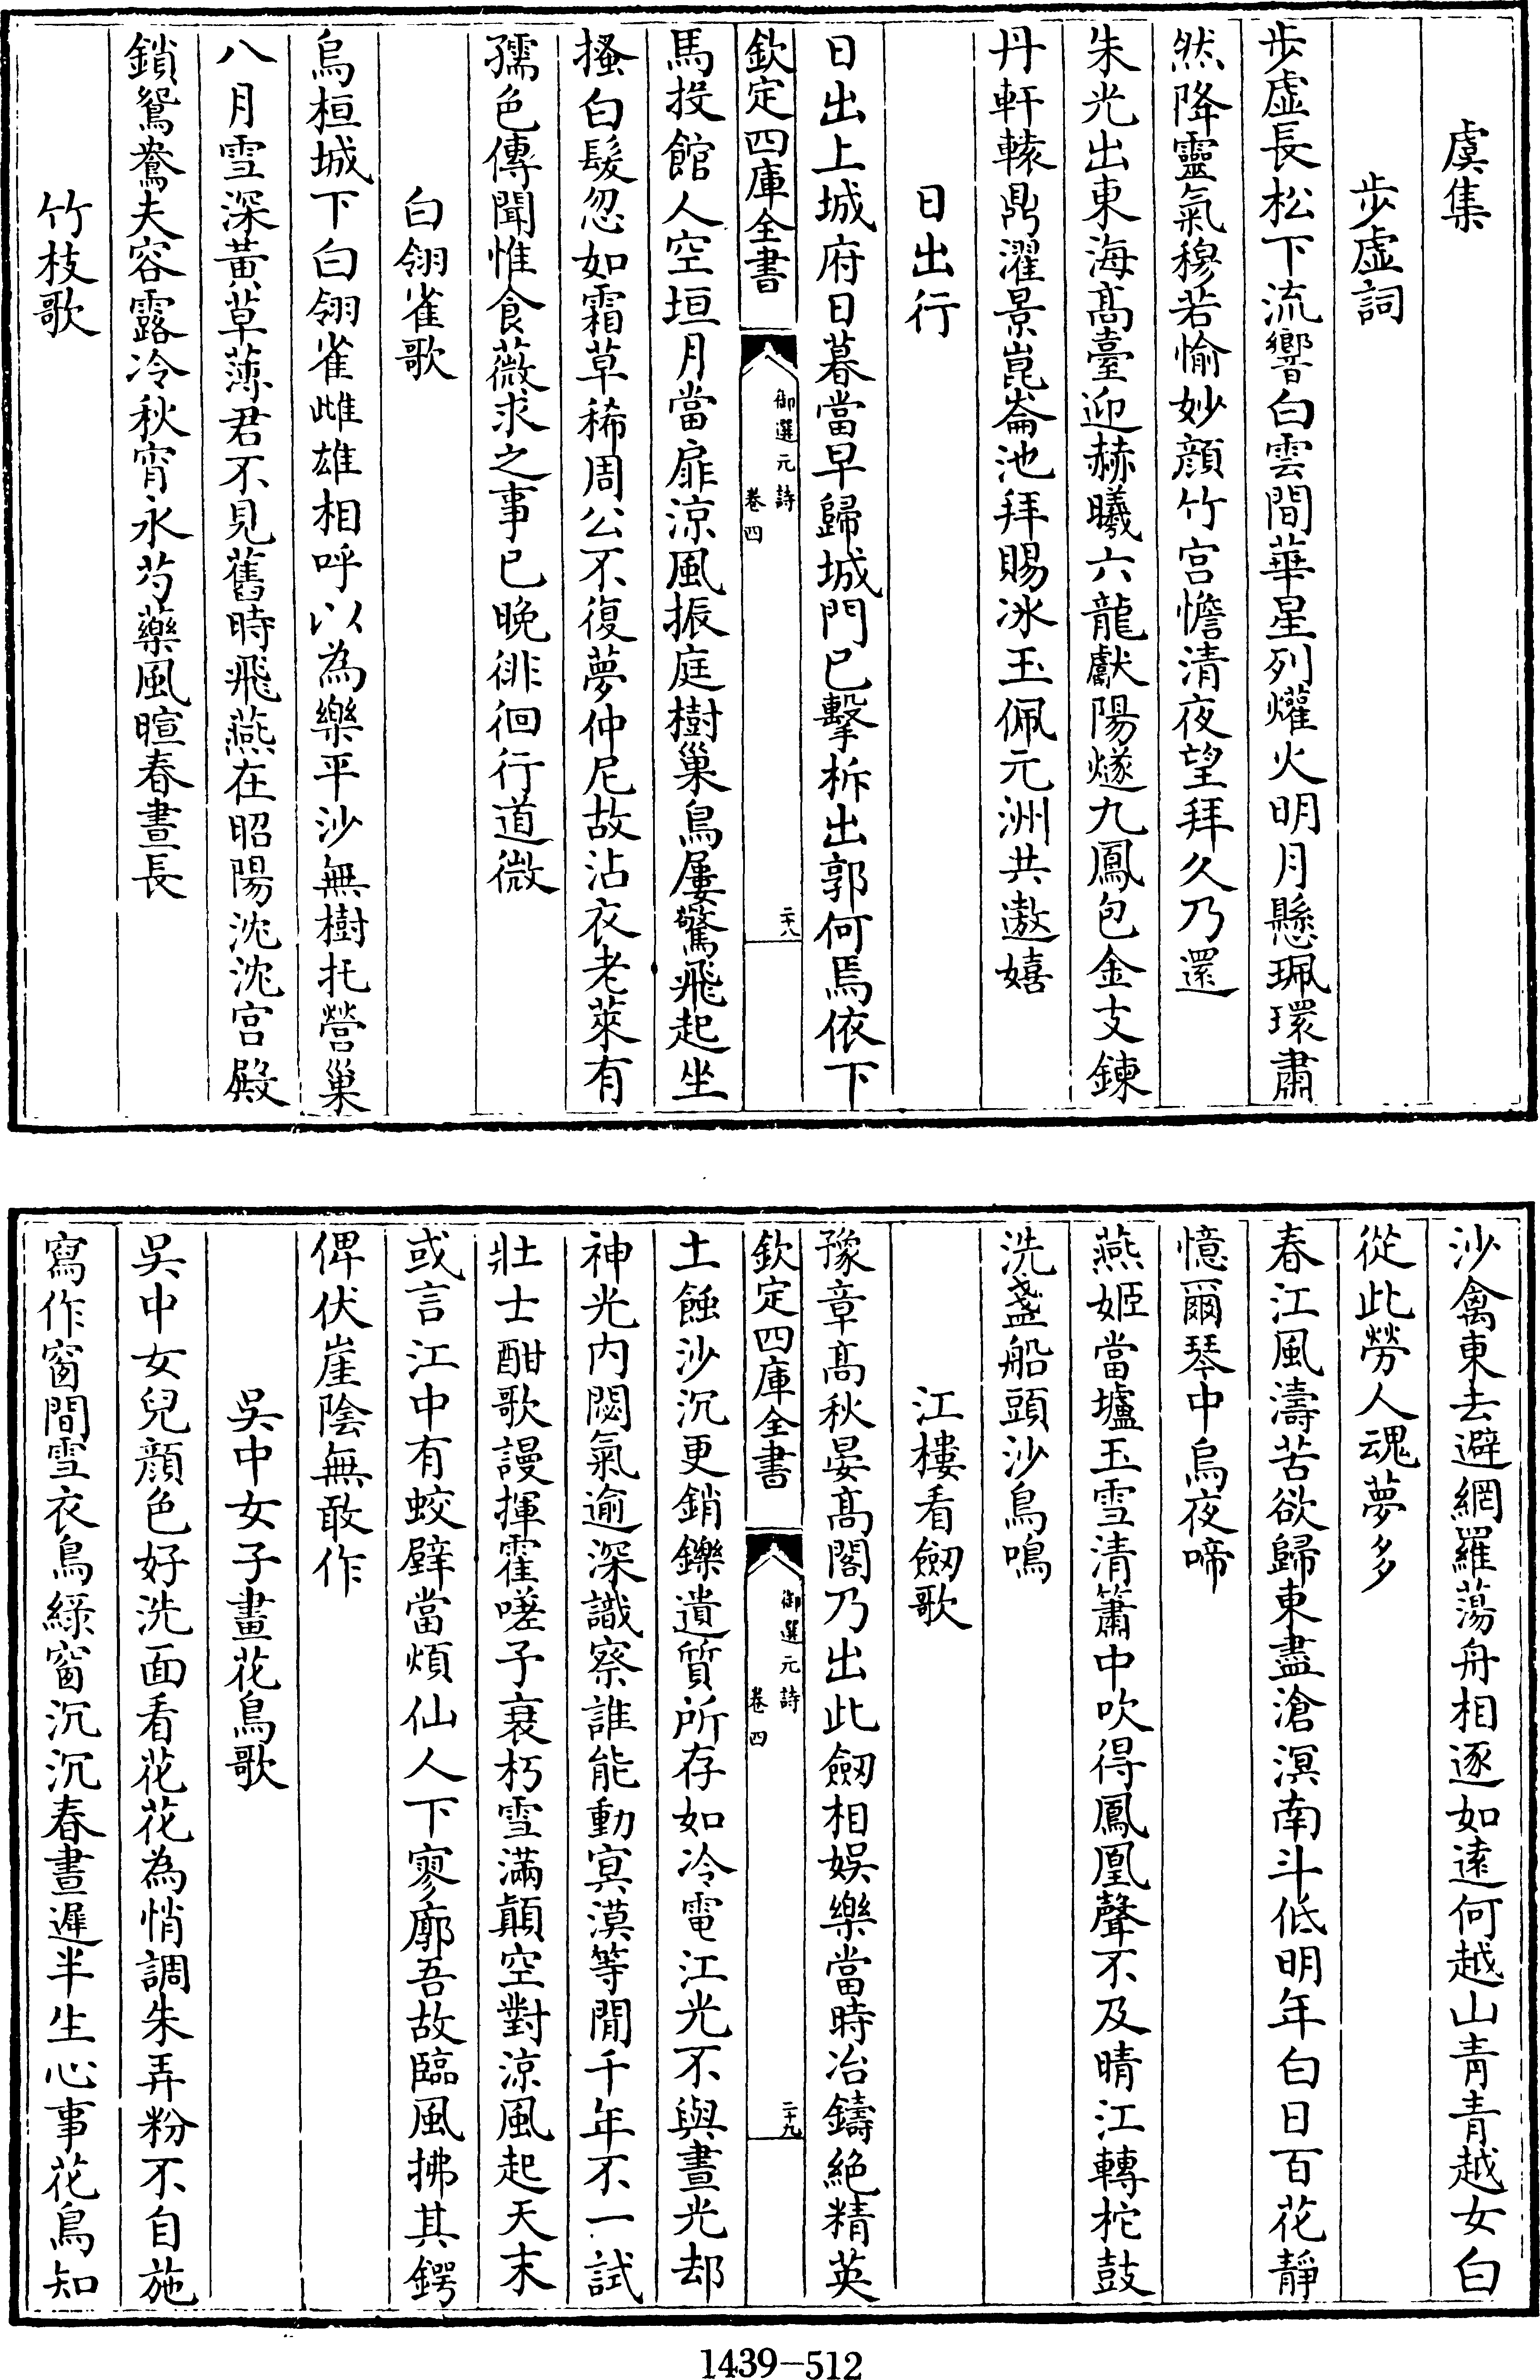 虞集
步虛詞
步虛長松下流響白雲間華星列爟火明月懸珮環肅
然降靈氣穆若愉妙顔竹宫憺清夜望拜久乃還
朱光出東海髙臺迎赫曦六龍獻陽燧九鳳包金支鍊
丹軒轅鼎濯景崑崙池拜賜冰玉佩元洲共遨嬉
日出行
日出上城府日暮當早歸城門已擊柝出郭何焉依下
欽定四庫全書
御選元詩
卷四
二十八
馬投館人空垣月當扉涼風振庭樹巢鳥屢驚飛起坐
搔白髮忽如霜草稀周公不復夢仲尼故沾衣老萊有
孺色傳聞惟食薇求之事已晚徘徊行道微
白翎雀歌
烏桓城下白翎雀雌雄相呼以為樂平沙無樹托營巢
八月雪深黃草薄君不見舊時飛燕在昭陽沈沈宫殿
鎖鴛鴦夫容露冷秋宵永芍藥風暄春晝長
竹枝歌
沙禽東去避網羅蕩舟相逐如遠何越山青青越女白
從此勞人魂夢多
春江風濤苦欲歸東盡滄溟南斗低明年白日百花靜
憶爾琴中烏夜啼
燕姬當壚玉雪清簫中吹得鳳凰聲不及晴江轉柁鼓
洗盞船頭沙鳥鳴
江樓看劒歌
豫章髙秋晏髙閣乃出此劒相娛樂當時冶鑄絶精英
欽定四庫全書
御選元詩
卷四
二十九
土蝕沙沉更銷鑠遺質所存如冷電江光不與晝光却
神光内閟氣逾深識察誰能動㝠漠等閒千年不一試
壯士酣歌謾揮霍嗟予衰朽雪滿顛空對涼風起天末
或言江中有蛟躃當煩仙人下寥廓吾故臨風拂其鍔
俾伏崖隂無敢作
吳中女子畫花鳥歌
吳中女兒顔色好洗面看花花為悄調朱弄粉不自施
寫作窗間雪衣鳥綠窗沉沉春晝遲半生心事花鳥知
1439-512